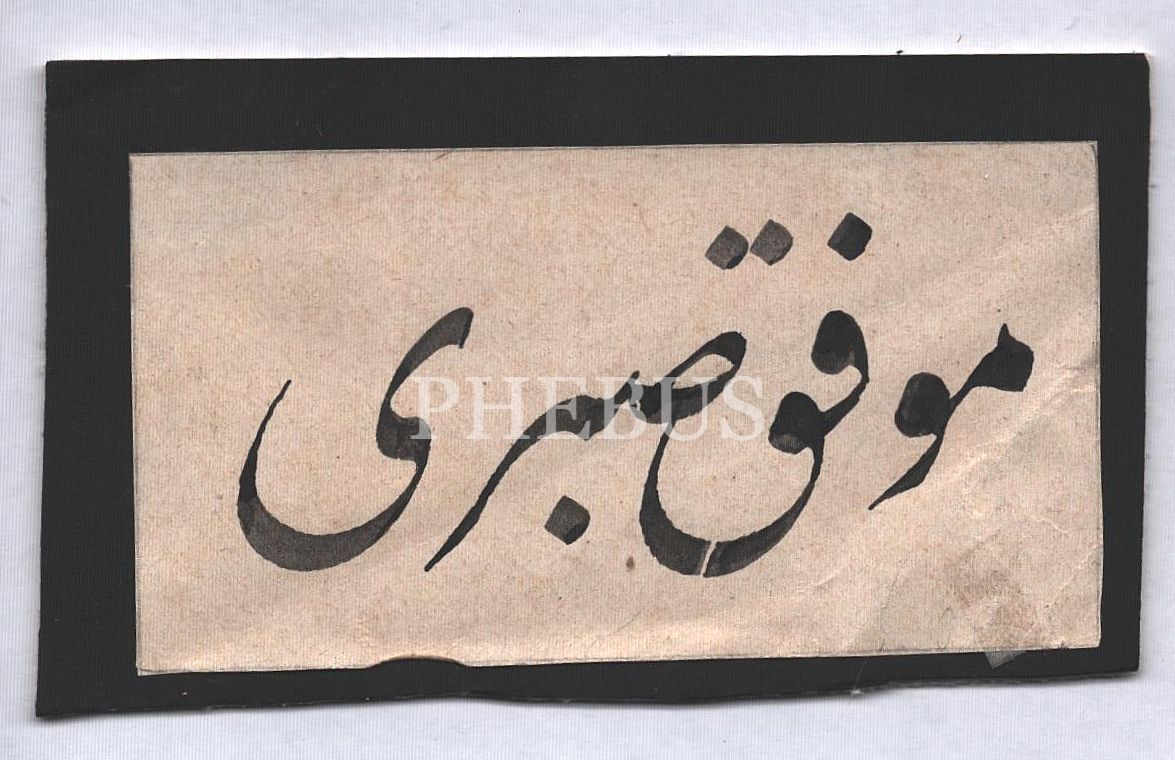 موفق صبری
PHEBUS